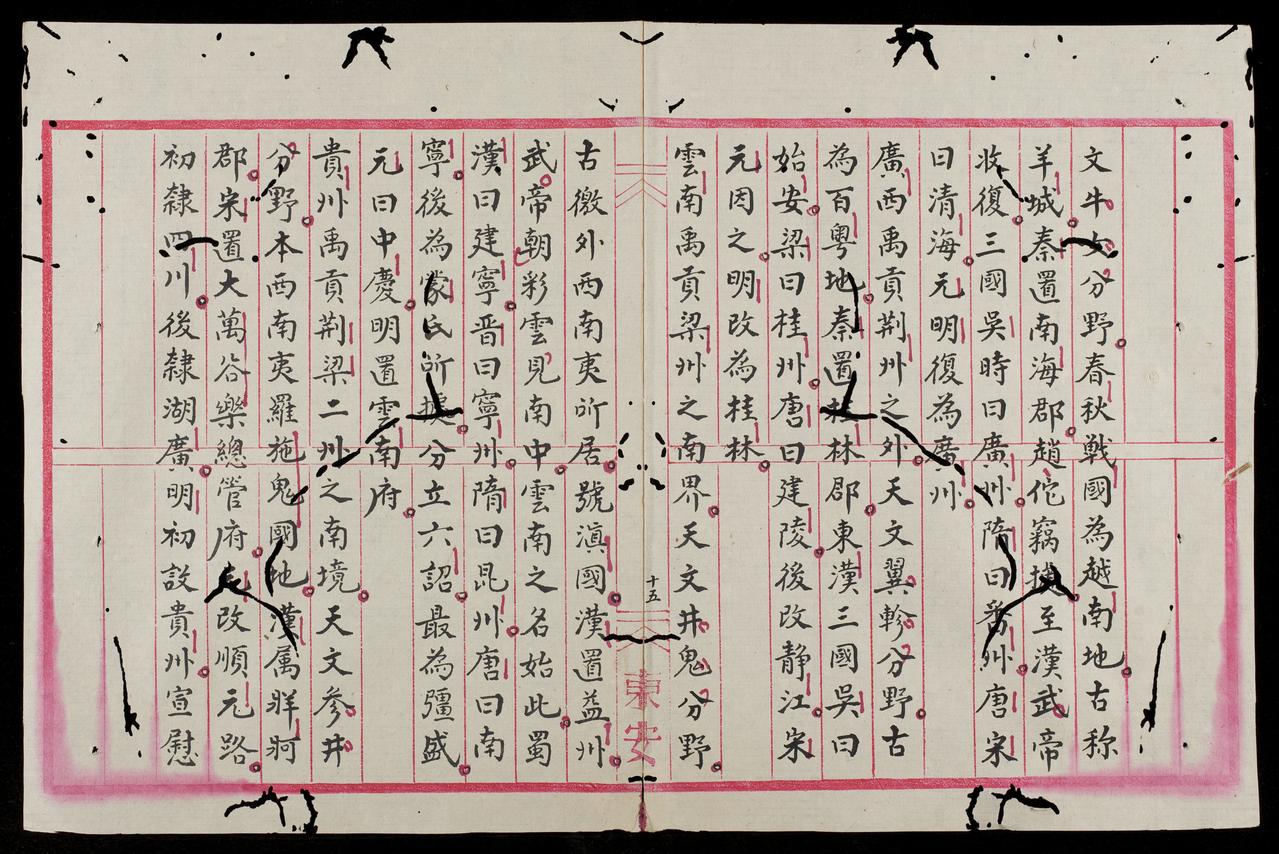 文牛女分野春秋戰國為越南地古称
羊城秦置南海郡趙佗竊據至漢武帝
收復三國吳時曰廣州隋曰番州唐宋
曰清海元明復為廣州
廣西禹貢荆州之外天文翼軫分野古
為百粵地秦置桂林郡東漢三國吳曰
始安梁曰桂州唐曰建陵後改静江宋
元因之明改為桂林
雲南禹貢梁州之南界天文井鬼分野
十五
東安
古徼外西南夷所居號滇國漢置益州
武帝朝彩雲見南中雲南之名始此蜀
漢曰建寧晋曰寧州隋曰昆州唐曰南
寧後為蒙氏所據分立六詔最為彊盛
元曰中慶明置雲南府
貴州禹貢荆梁二州之南境天文參井
分野本西南夷羅施鬼國地漢属牂牁
郡宋置大萬谷樂總管府元改順元路
初隸四川後隸湖廣明初設貴州宣慰